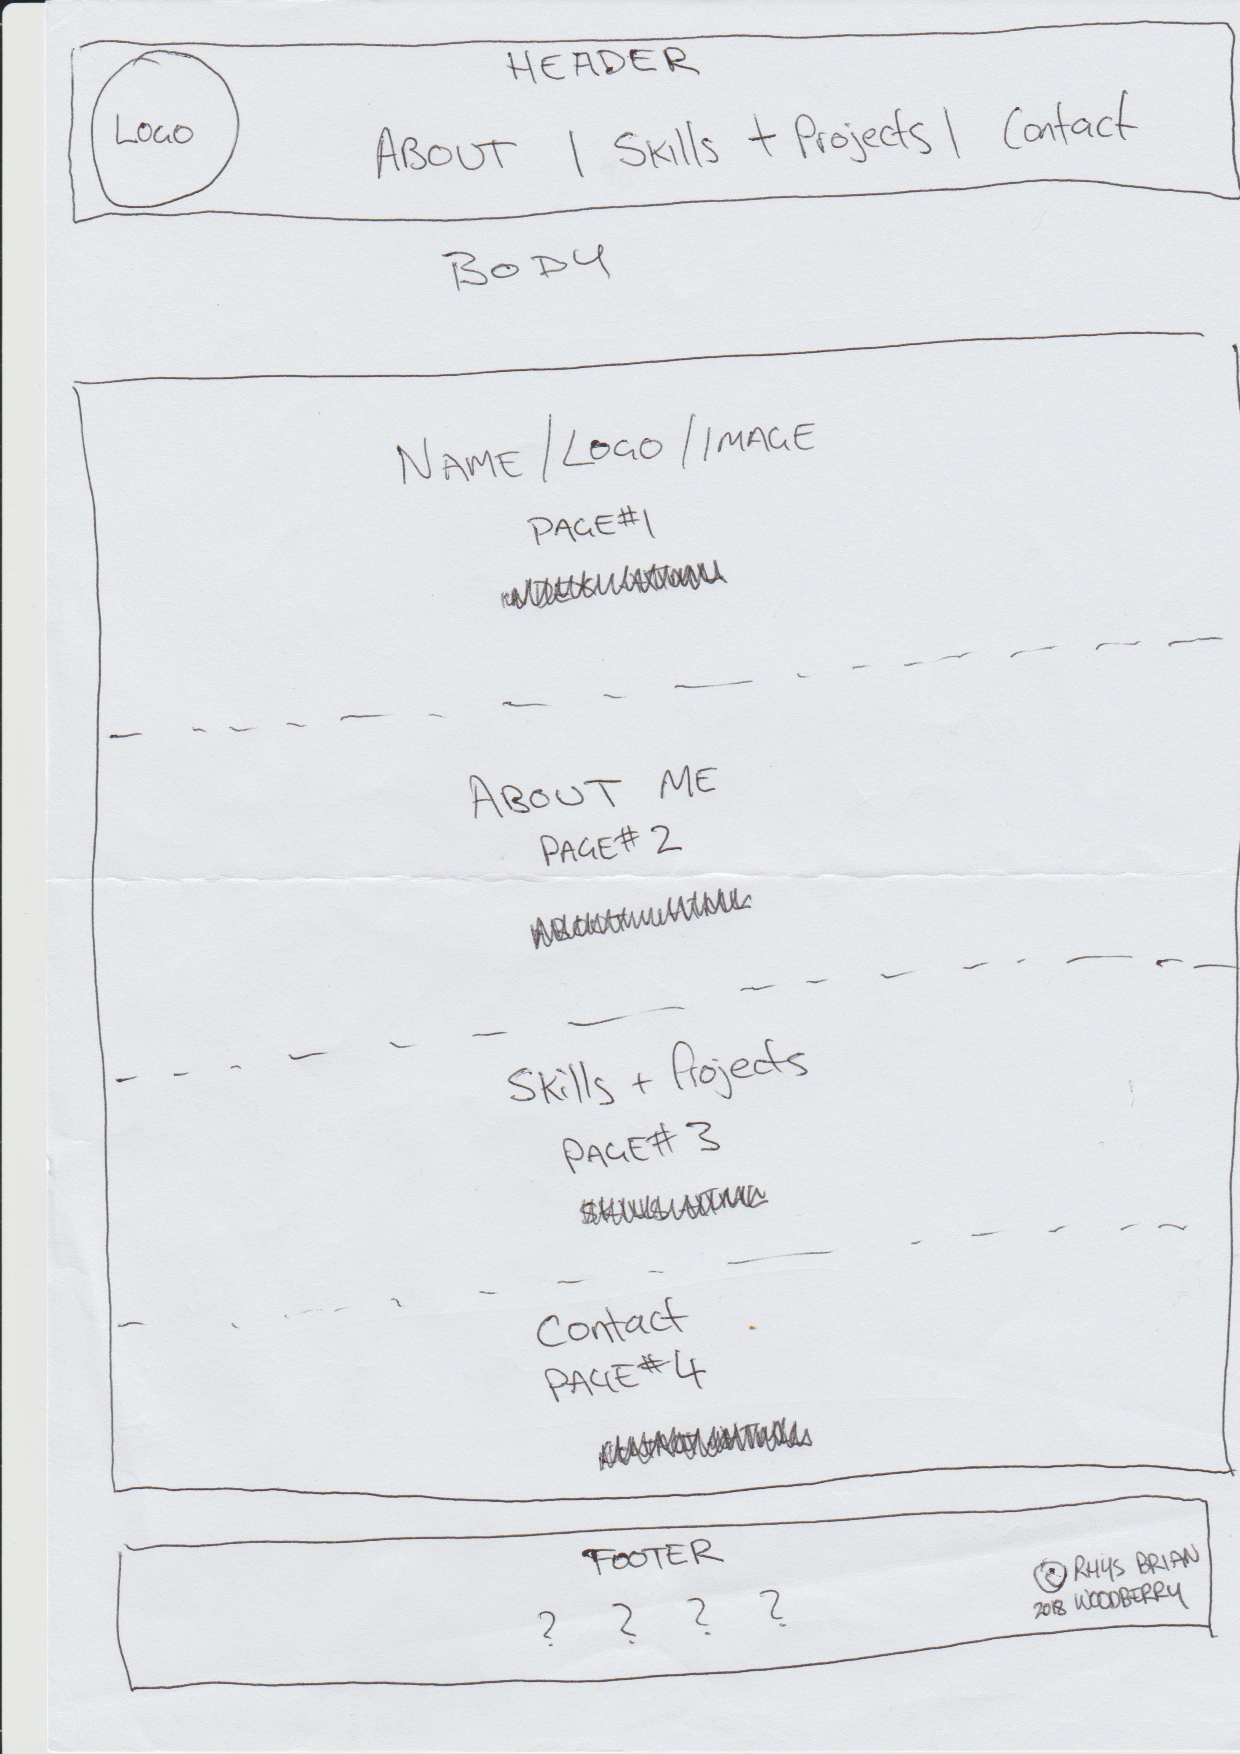 HEADER
LOGO
ABOUT | Skills + Projects | Contact
BODY
NAME/LOGO/IMAGE
PAGE#1
ABOUT ME
PAGE#2
Skills + Projects
PAGE#3
Contact
PAGE#4
FOOTER
? ? ? ?
© RHYS BRIAN
2018 WOODBERRY